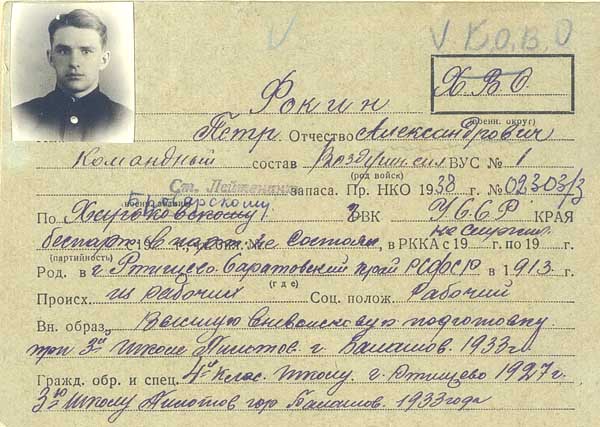 V К.О.В.О
Х.В.О.
(военн. округ)
Фокин
Петр Отчество Александрович
Командный состав Воздушн. сил ВУС № 1
(род войск)
Ст. Лейтенант запаса. Пр. НКО 1938 г. № 02303/3
По РВК УССР КРАЯ
беспарт. в партии не состоял, в РККА с 19 г. по 19 г. не служил
(партийность)
Род. в г. Ртищево Саратовский край РСФСР в 1913 г.
(где)
Происх. из рабочих Соц. полож. Рабочий
Вн. образ. Высшую вневойсковую подготовку
при 3й школе Пилотов г. Балашов. 1933 г.
Гражд. обр. и спец. 4е клас. школу. г. Ртищево 1927 г.
3ю школу Пилотов гор Балашов. 1933 года